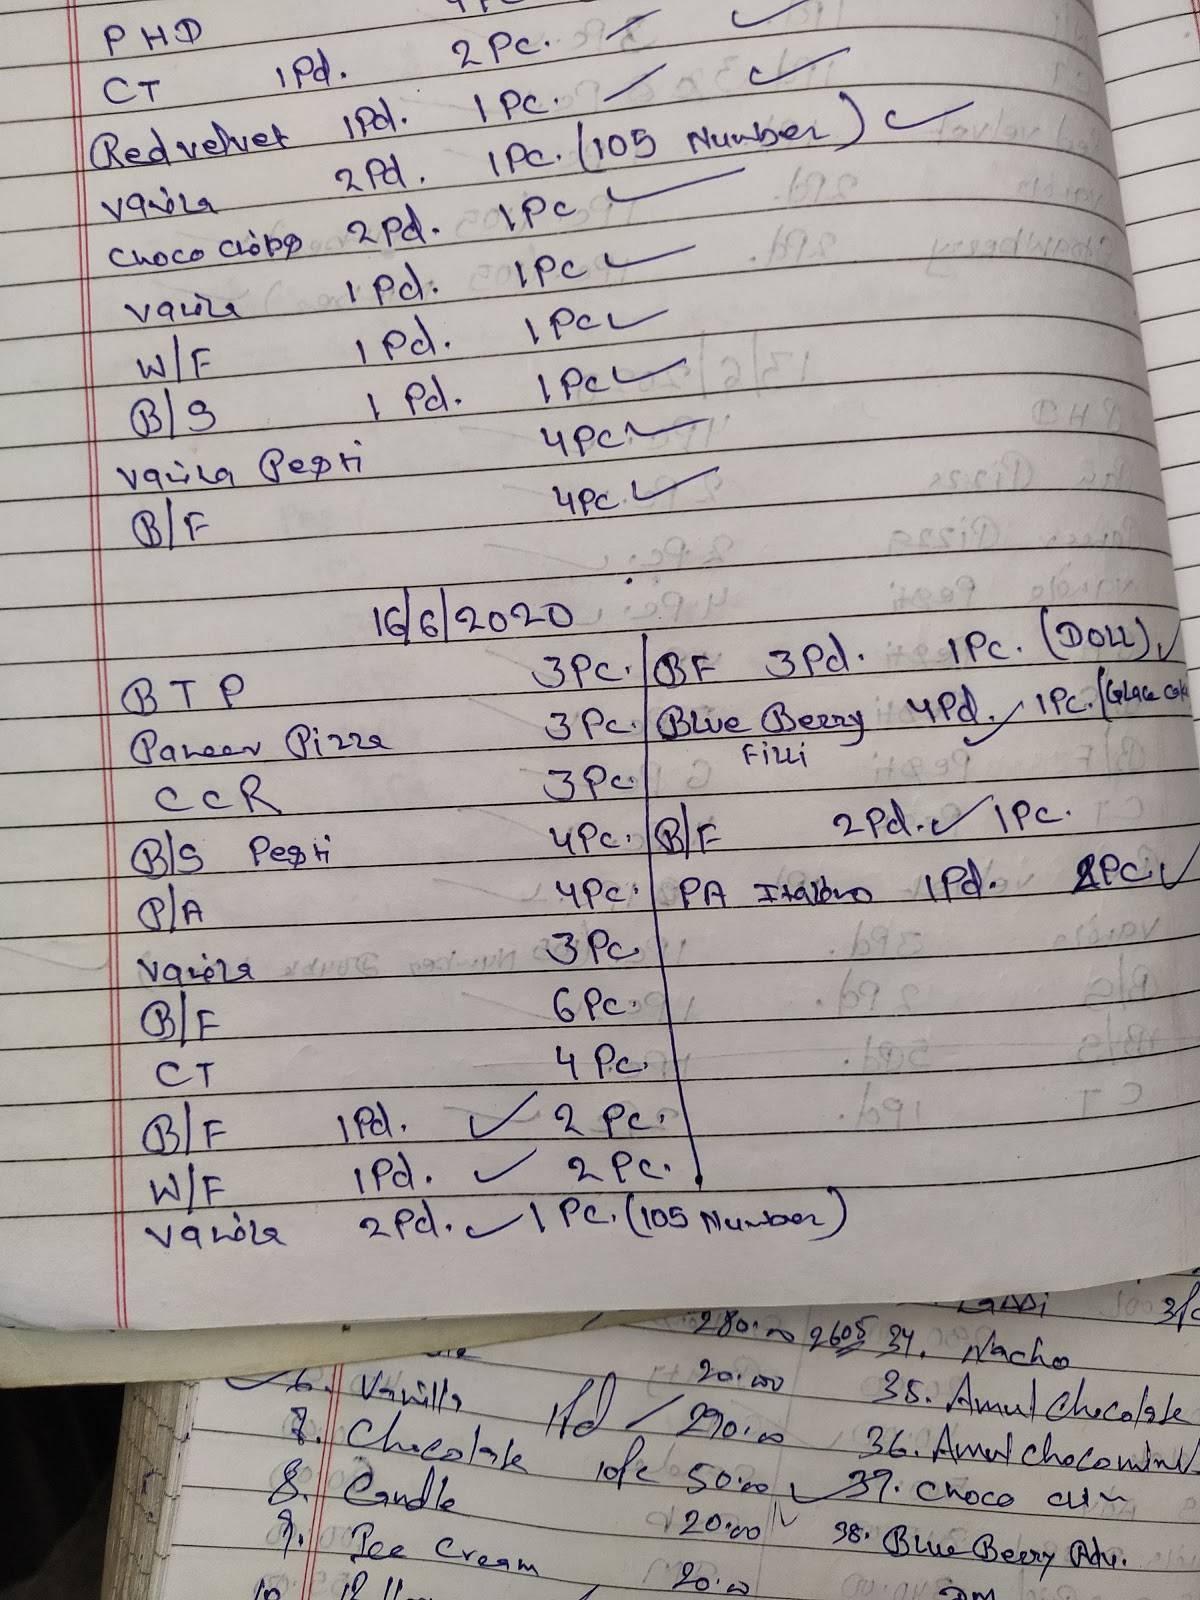 PHD
CT 1Pd. 2Pc.
Redvelvet 1Pd. 1Pc.
Vanila 2Pd. 1Pc. (105 Number)
Choco Chips 2Pd. 1Pc
Vanila 1Pd. 1Pc
W/F 1Pd. 1Pc
B/S 1Pd. 1Pc
Vanila Pestri 4Pc
B/F 4Pc
16/6/2020
BTP 3Pc. BF 3Pd. 1Pc. (DOLL)
Paneer Pizza 3Pc. Blue Berry 4Pd. 1Pc.
Filli
CCR 3Pc.
B/S Pestri 4Pc. B/F 2Pd. 1Pc.
P/A 4Pc. PA Italian 1Pd. Pc
Vanila 3Pc.
B/F 6Pc.
CT 4Pc.
B/F 1Pd. 2Pc.
W/F 1Pd. 2Pc.
Vanila 2Pd. 1Pc. (105 Number)
280.00 2605 34. Nacho
20.00 35. Amul Chocolate
6. Vanilla 1Pd 290.00 36. Amul
7. Chocolate 10Pc 50.00 37. Choco
8. Candle 20.00 38. Blue Beery Adv.
9. Ice Cream 20.00
10.